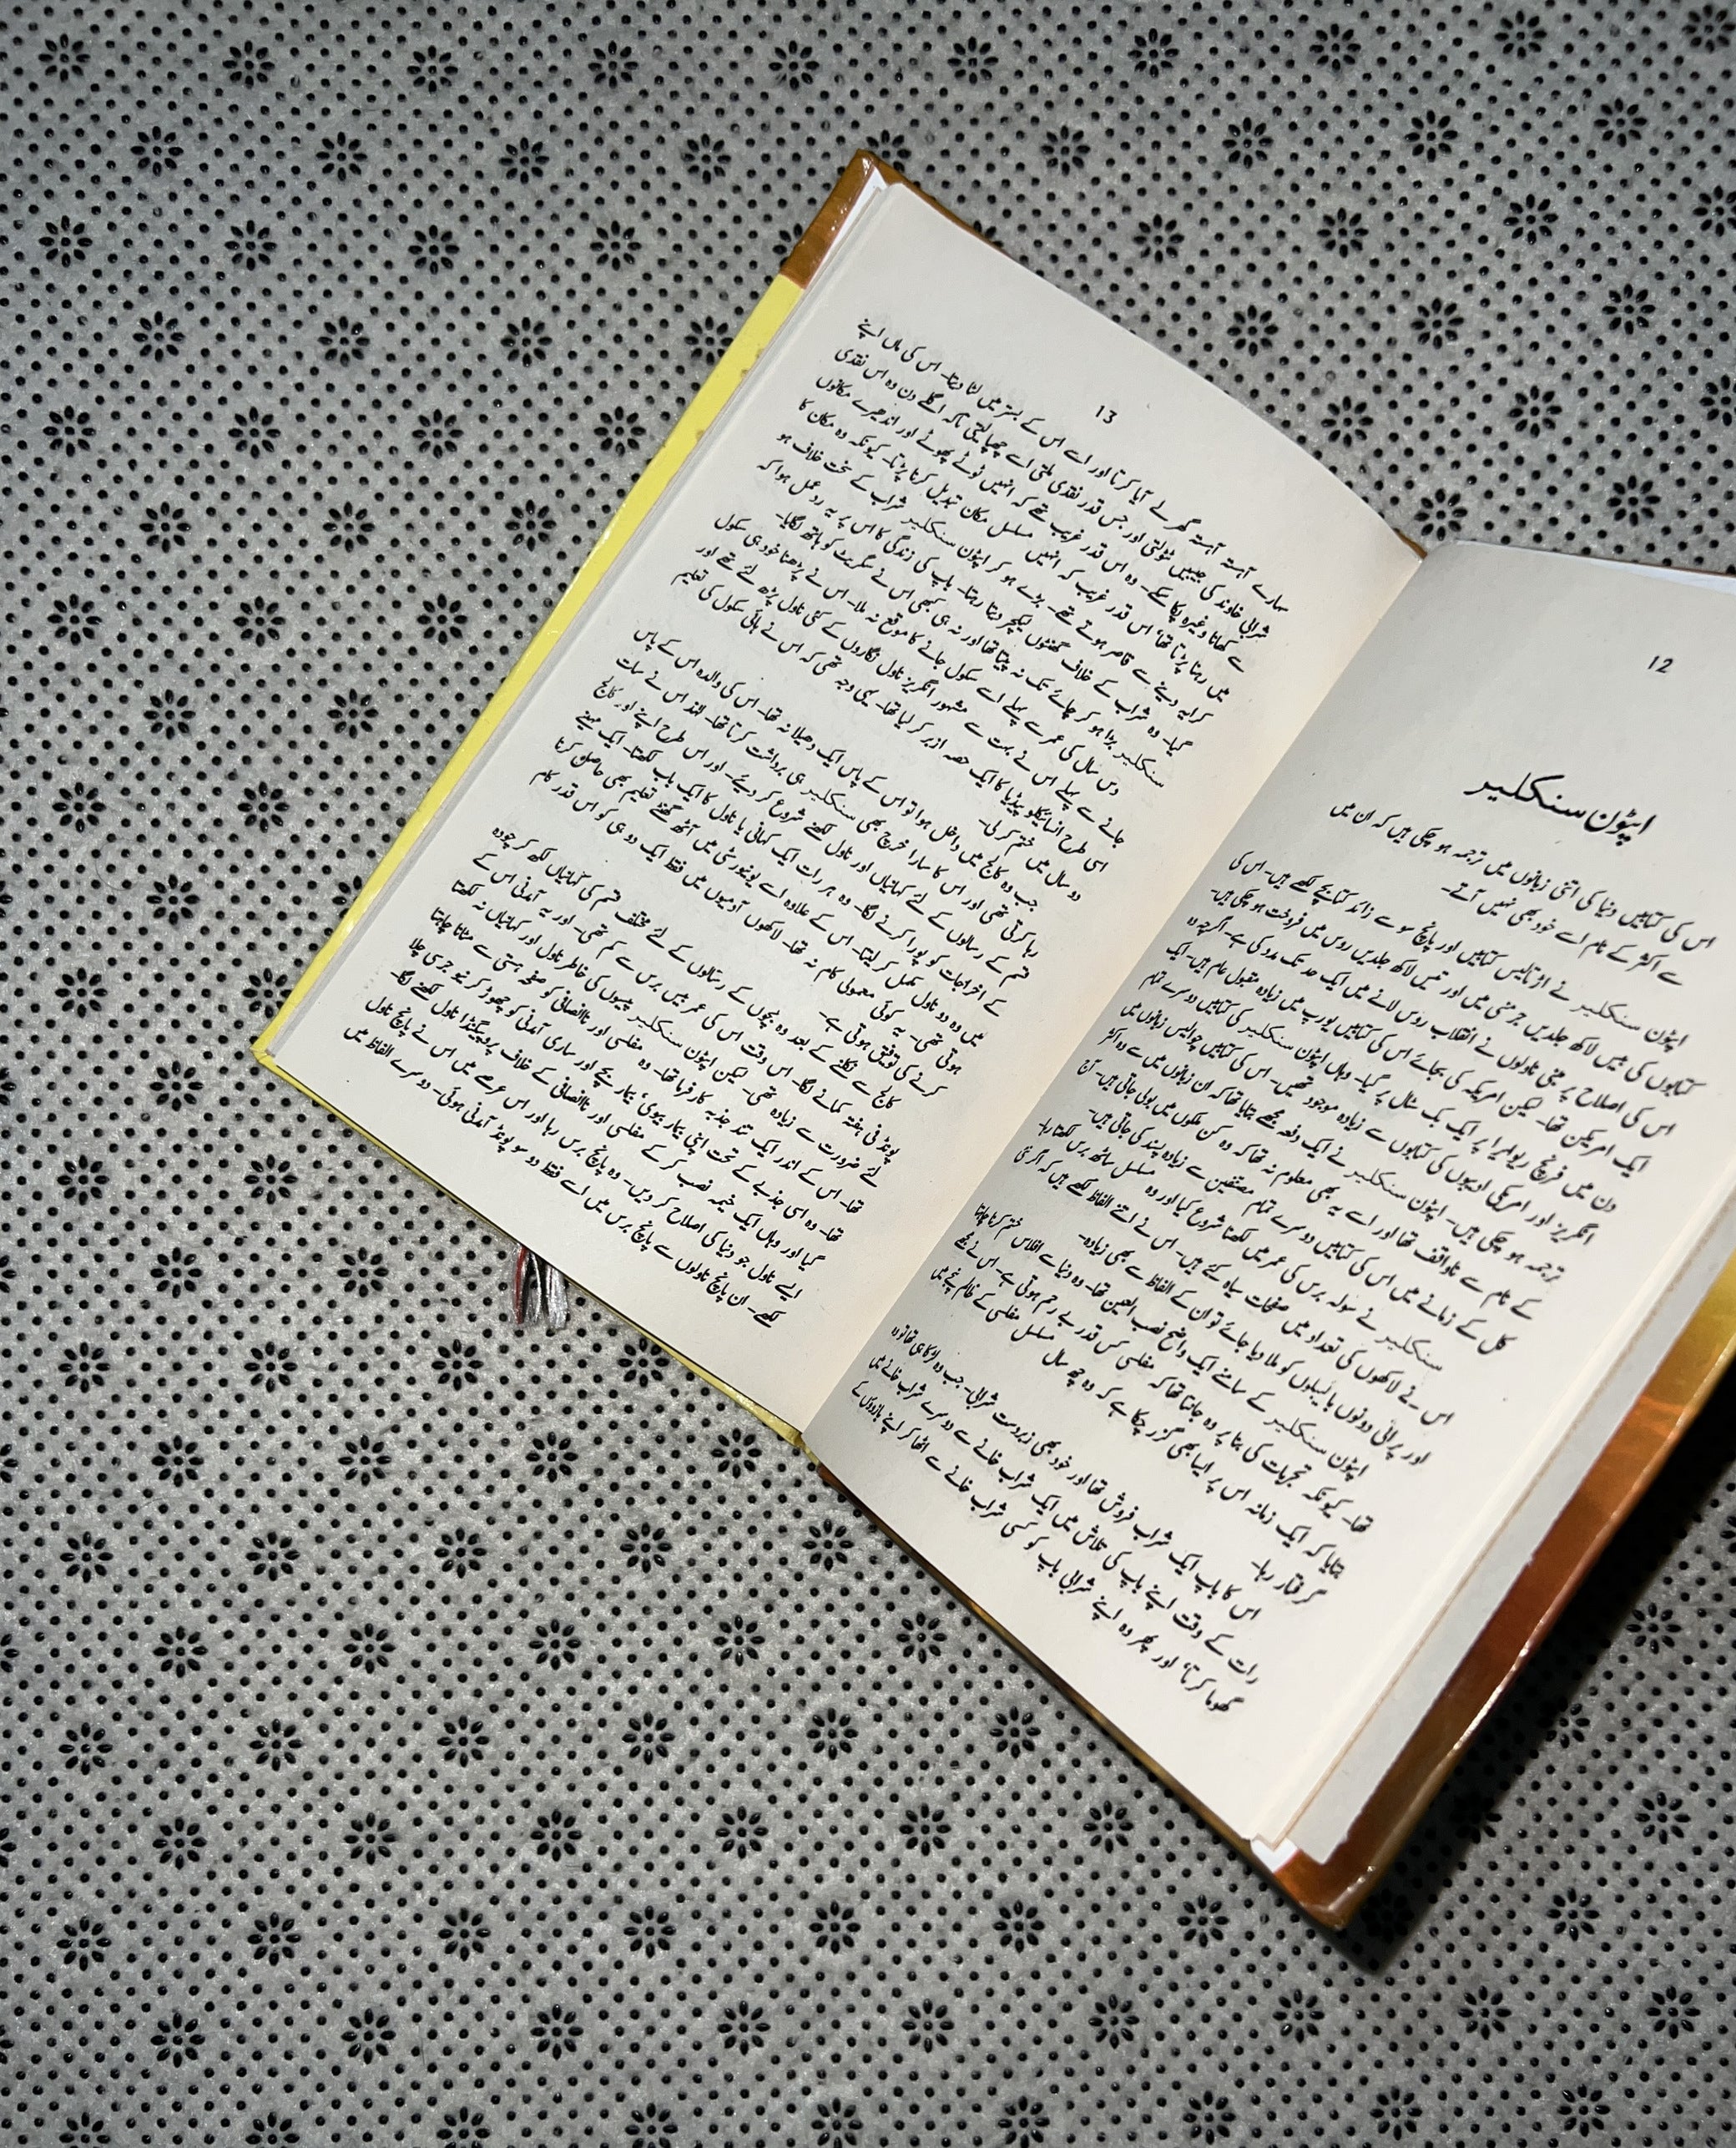 12
اپٹون سنکلیر
اس کی کتابیں دنیا کی اتنی زبانوں میں ترجمہ ہو چکی ہیں کہ ان میں
سے اکثر کے نام اسے خود بھی نہیں آتے۔
اپٹون سنکلیر نے اڑتالیس کتابیں اور پانچ سو سے زائد کتابچے لکھے ہیں۔ اس کی
کتابوں کی بیس لاکھ جلدیں جرمنی میں اور تیس لاکھ جلدیں روس میں فروخت ہو چکی ہیں۔
اس کی اصلاح پر مبنی ناولوں نے انقلاب روس لانے میں ایک حد تک مدد کی ہے۔ اگرچہ وہ
ایک امریکن تھا۔ لیکن امریکہ کی بجائے اس کی کتابیں یورپ میں زیادہ مقبول عام ہیں۔ ایک
دن میں فرنچ ریویرا پر ایک بک سٹال پر گیا۔ وہاں اپٹون سنکلیر کی کتابیں دوسرے تمام
انگریز اور امریکی ادیبوں کی کتابوں سے زیادہ موجود تھیں۔ اس کی کتابیں چوالیس زبانوں میں
ترجمہ ہو چکی ہیں۔ اپٹون سنکلیر نے ایک دفعہ مجھے بتایا تھا کہ ان زبانوں میں سے وہ اکثر
کے نام سے ناواقف تھا اور اسے یہ بھی معلوم نہ تھا کہ وہ کن ملکوں میں بولی جاتی ہیں۔ آج
کل کے زمانے میں اس کی کتابیں دوسرے تمام مصنفین سے زیادہ پسند کی جاتی ہیں۔
سنکلیر نے سولہ برس کی عمر میں لکھنا شروع کیا اور وہ مسلسل ساٹھ برس لکھتا رہا۔
اس نے لاکھوں کی تعداد میں صفحات سیاہ کئے ہیں۔ اس نے اتنے الفاظ لکھے ہیں کہ اگر نئی
اور پرانی دونوں بائیبلوں کو ملا دیا جائے تو ان کے الفاظ سے بھی زیادہ۔
اپٹون سنکلیر کے سامنے ایک واضح نصب العین تھا۔ وہ دنیا سے افلاس ختم کرنا چاہتا
تھا۔ کیونکہ تجربات کی بنا پر وہ جانتا تھا کہ مفلسی کس قدر بے رحم ہوتی ہے۔ اس نے مجھے
بتایا کہ ایک زمانہ اس پر ایسا بھی گزر چکا ہے کہ وہ چھ سال مسلسل مفلسی کے ظالم پنجے میں
گرفتار رہا۔
اس کا باپ ایک شراب فروش تھا اور خود بھی زبردست شرابی۔ جب وہ لڑکا ہی تھا تو وہ
رات کے وقت اپنے باپ کی تلاش میں ایک شراب خانے سے دوسرے شراب خانے میں
گھوما کرتا، اور پھر وہ اپنے شرابی باپ کو کسی شراب خانے سے اٹھا کر اپنے بازوؤں کے
13
سہارے آہستہ آہستہ گھر لے آیا کرتا اور اسے اس کے بستر میں لٹا دیتا۔ اس کی ماں اپنے
شرابی خاوند کی جیبیں ٹٹولتی اور جس قدر نقدی ملتی اسے چھپا لیتی تاکہ اگلے دن وہ اس نقدی
سے کھانا وغیرہ پکا سکے۔ وہ اس قدر غریب تھے کہ انہیں ٹوٹے پھوٹے اور اندھیرے مکانوں
میں رہنا پڑتا تھا، اس قدر غریب کہ انہیں مسلسل مکان تبدیل کرنا پڑتا۔ کیونکہ وہ مکان کا
کرایہ دینے سے قاصر ہوتے تھے۔ بڑے ہو کر اپٹون سنکلیر شراب کے سخت خلاف ہو
گیا۔ وہ شراب کے خلاف گھنٹوں لیکچر دیتا رہتا۔ باپ کی زندگی کا اس پر یہ رد عمل ہوا کہ
سنکلیر بڑا ہو کر چائے تک نہ پیتا تھا اور نہ ہی کبھی اس نے سگریٹ کو ہاتھ لگایا۔
دس سال کی عمر سے پہلے اسے سکول جانے کا موقع نہ ملا۔ اس نے پڑھنا خود ہی سکول
جانے سے پہلے اس نے بہت سے مشہور انگریز ناول نگاروں کے کئی ناول پڑھ لئے تھے اور
اسی طرح انسائیکلو پیڈیا کا ایک حصہ ازبر کر لیا تھا۔ یہی وجہ تھی کہ اس نے ہائی سکول کی تعلیم
دو سال میں ختم کر لی۔
جب وہ کالج میں داخل ہوا تو اس کے پاس ایک دھیلا نہ تھا۔ اس کی والدہ اس کے پاس
رہا کرتی تھی اور اس کا سارا خرچ بھی سنکلیر ہی برداشت کرتا تھا۔ لہٰذا اس نے سات
قسم کے رسالوں کے لئے کہانیاں اور ناول لکھنے شروع کر دیئے۔ اور اس طرح اپنے اور کالج
کے اخراجات کو پورا کرنے لگا۔ وہ ہر رات ایک کہانی یا ناول کا ایک باب لکھتا۔ ایک مہینے
میں وہ دو ناول مکمل کر لیتا۔ اس کے علاوہ اسے یونیورسٹی میں آٹھ گھنٹے تعلیم بھی حاصل کرنا
ہوتی تھی۔ یہ کوئی معمولی کام نہ تھا۔ لاکھوں آدمیوں میں فقط ایک دو ہی کو اس قدر کام
کرنے کی توفیق ہوتی ہے۔
کالج سے نکلنے کے بعد وہ بچوں کے رسالوں کے لئے مختلف قسم کی کہانیاں لکھ کر چودہ
پونڈ فی ہفتہ کمانے لگا۔ اس وقت اس کی عمر بیس برس سے کم تھی۔ اور یہ آمدنی اس کے
لئے ضرورت سے زیادہ تھی۔ لیکن اپٹون سنکلیر پیسوں کی خاطر ناول اور کہانیاں نہ لکھتا
تھا۔ اس کے اندر ایک تند جذبہ کارفرما تھا۔ وہ مفلسی اور ناانصافی کو صفحہ ہستی سے مٹانا چاہتا
تھا۔ وہ اسی جذبے کے تحت اپنی بیمار بیوی، بیمار بچے اور ساری آمدنی کو چھوڑ کر نیو جرسی چلا
گیا اور وہاں ایک خیمہ نصب کر کے مفلسی اور ناانصافی کے خلاف پروپیگنڈا ناول لکھنے لگا۔
ایسے ناول جو دنیا کی اصلاح کر دیں۔ وہ پانچ برس رہا اور اس عرصے میں اس نے پانچ ناول
لکھے۔ ان پانچ ناولوں سے پانچ برس میں اسے فقط دو سو پونڈ آمدنی ہوئی۔ دوسرے الفاظ میں